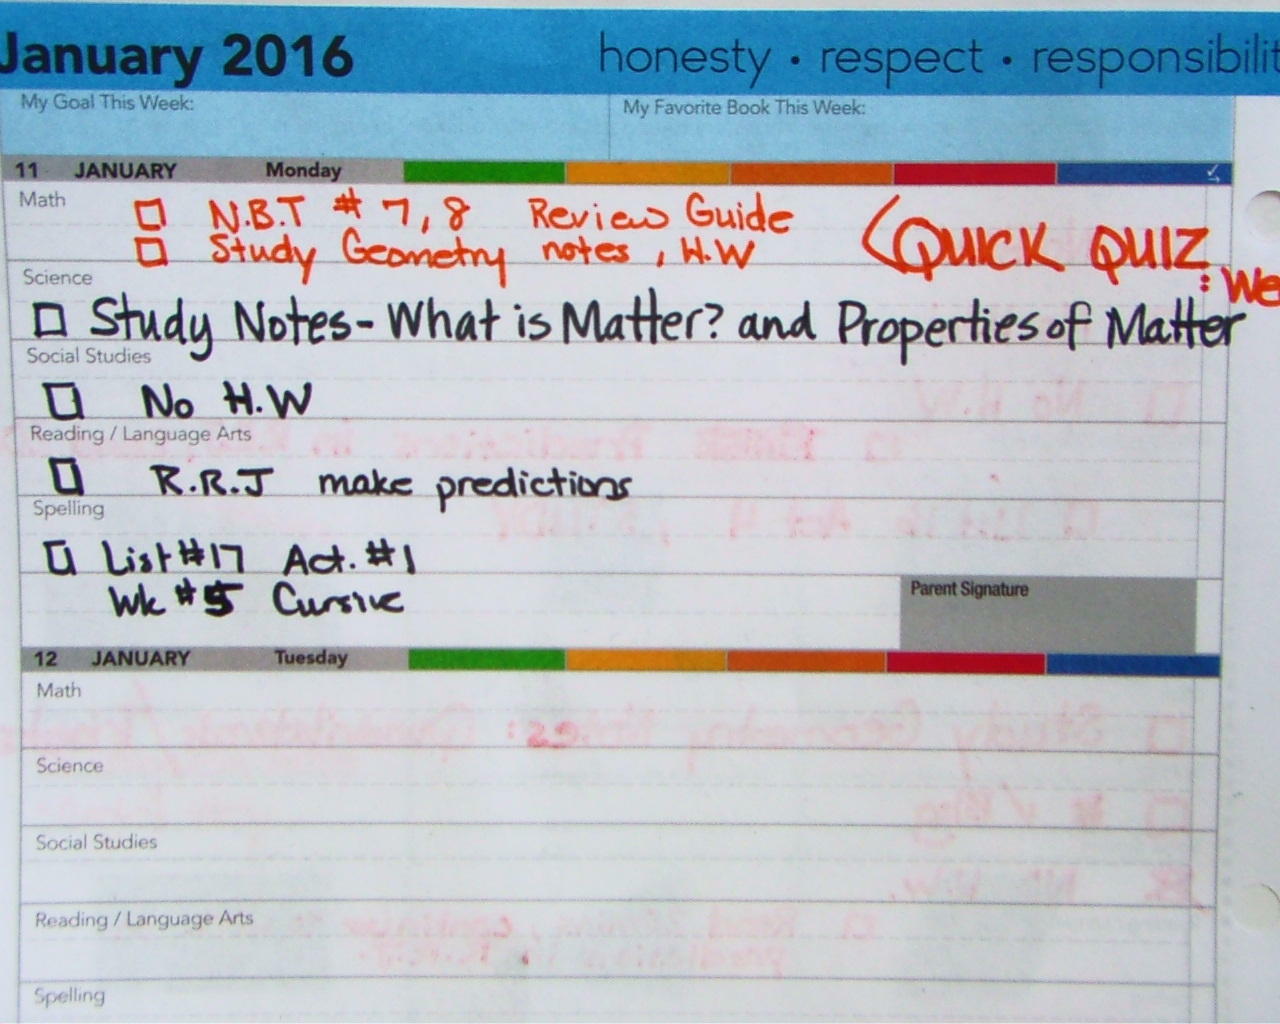 January 2016 honesty • respect • responsibilit
My Goal This Week: My Favorite Book This Week:
11 JANUARY Monday
Math
☐ N.B.T # 7, 8 Review Guide
☐ Study Geometry notes, H.W (QUICK QUIZ
: We
Science
☐ Study Notes - What is Matter? and Properties of Matter
Social Studies
☐ No H.W
Reading / Language Arts
☐ R.R.J make predictions
Spelling
☐ List #17 Act. #1
Wk #5 Cursive
Parent Signature
12 JANUARY Tuesday
Math
Science
Social Studies
Reading / Language Arts
Spelling